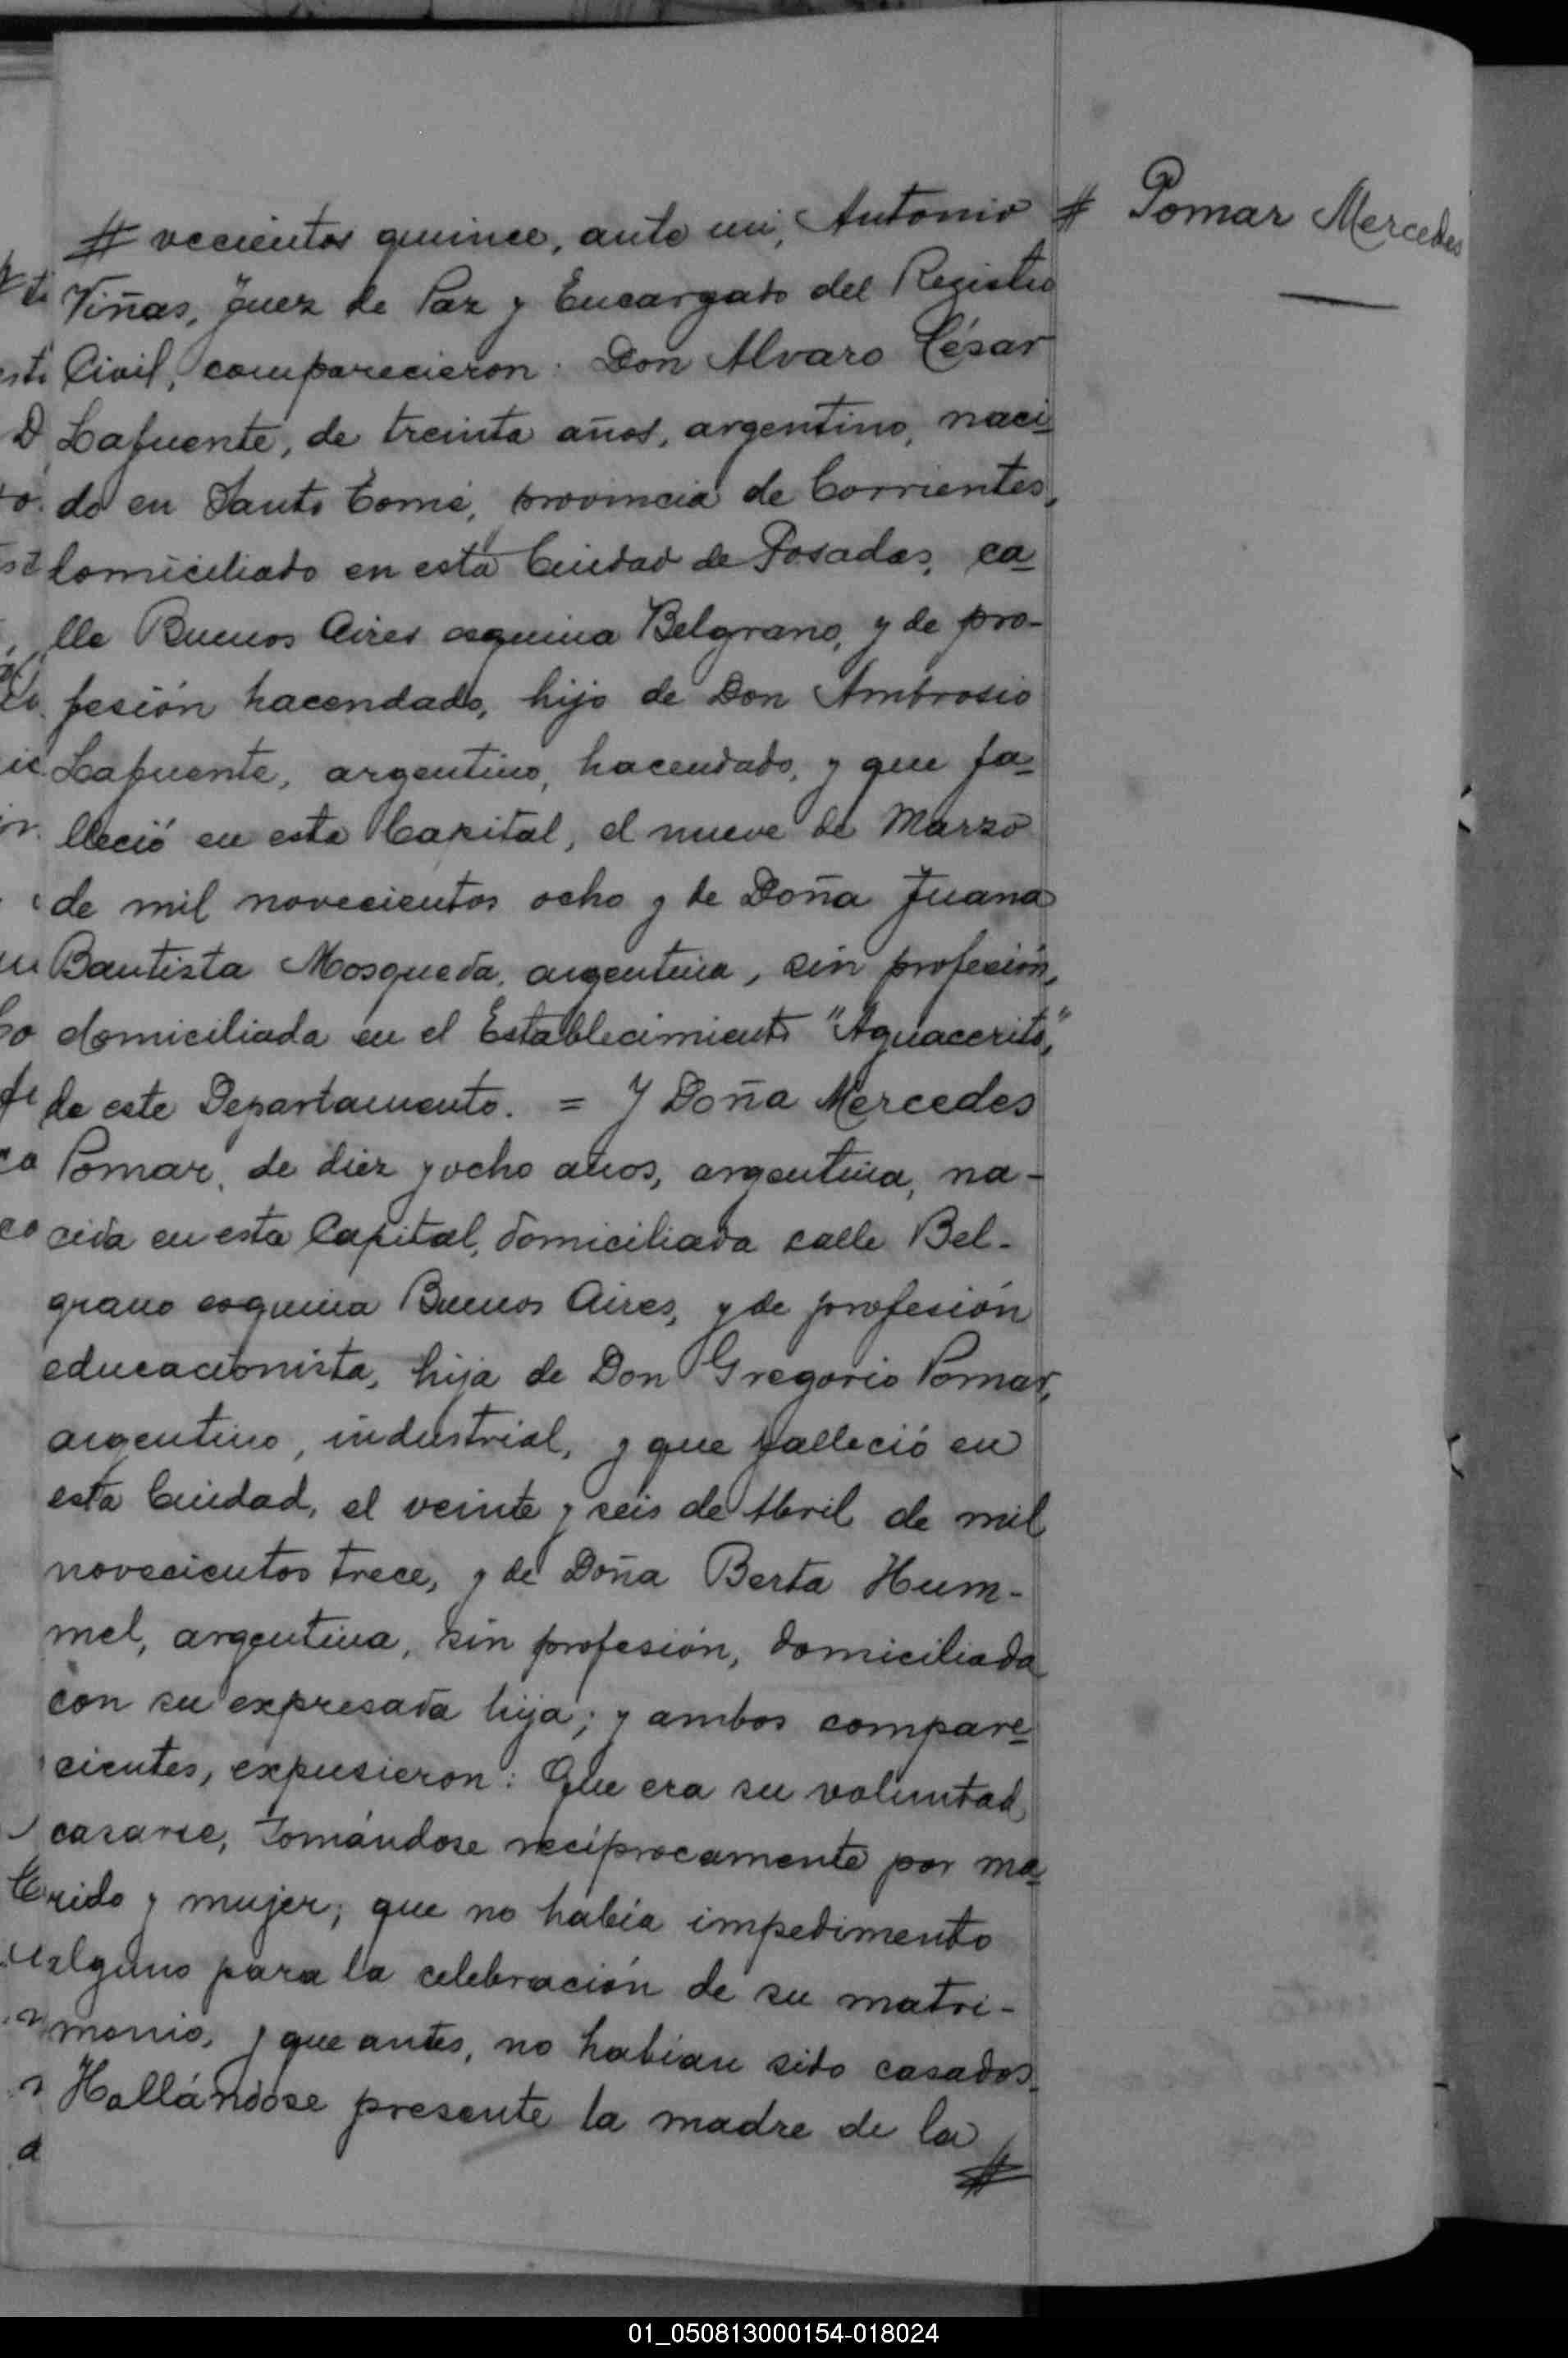 # Pomar Mercedes
# vecientos quince, ante mi, Antonio
Viñas, Juez de Paz y Encargado del Registro
Civil, comparecieron: Don Alvaro César
Lafuente, de treinta años, argentino, naci-
do en Santo Tomé, provincia de Corrientes,
domiciliado en esta Ciudad de Posadas, ca-
lle Buenos Aires esquina Belgrano, y de pro-
fesión hacendado, hijo de Don Ambrosio
Lafuente, argentino, hacendado, y que fa-
lleció en esta Capital, el nueve de Marzo
de mil novecientos ocho y de Doña Juana
Bautista Mosqueda, argentina, sin profesión,
domiciliada en el Establecimiento "Aguacerito",
de este Departamento. = Y Doña Mercedes
Pomar, de diez y ocho años, argentina, na-
cida en esta Capital, domiciliada calle Bel-
grano esquina Buenos Aires, y de profesión
educacionista, hija de Don Gregorio Pomar,
argentino, industrial, y que falleció en
esta Ciudad, el veinte y seis de Abril de mil
novecientos trece, y de Doña Berta Hum-
mel, argentina, sin profesión, domiciliada
con su expresada hija; y ambos compare-
cientes, expusieron: Que era su voluntad
casarse, tomándose recíprocamente por ma-
rido y mujer; que no había impedimento
alguno para la celebración de su matri-
monio, y que antes, no habían sido casados.
Hallándose presente la madre de la
#
01_050813000154-018024